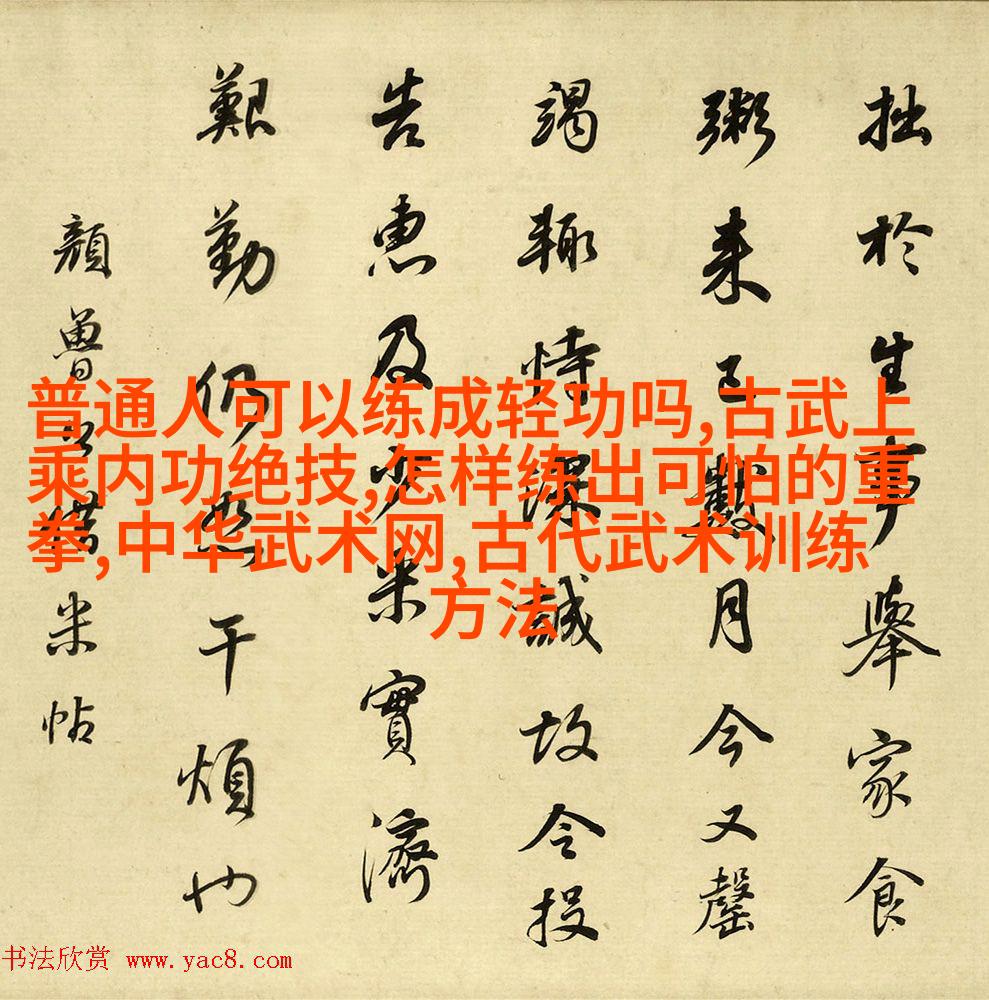 拙於生事舉家食
粥来已數月今又罄
竭輙恃深誠故令投
告惠及少米實濟
艱勤仍恕干煩也
顔魯公米帖
普通人可以练成轻功吗,古武上
乘内功绝技,怎样练出可怕的重
拳,中华武术网,古代武术训练
方法
书法欣赏 www.yac8.com